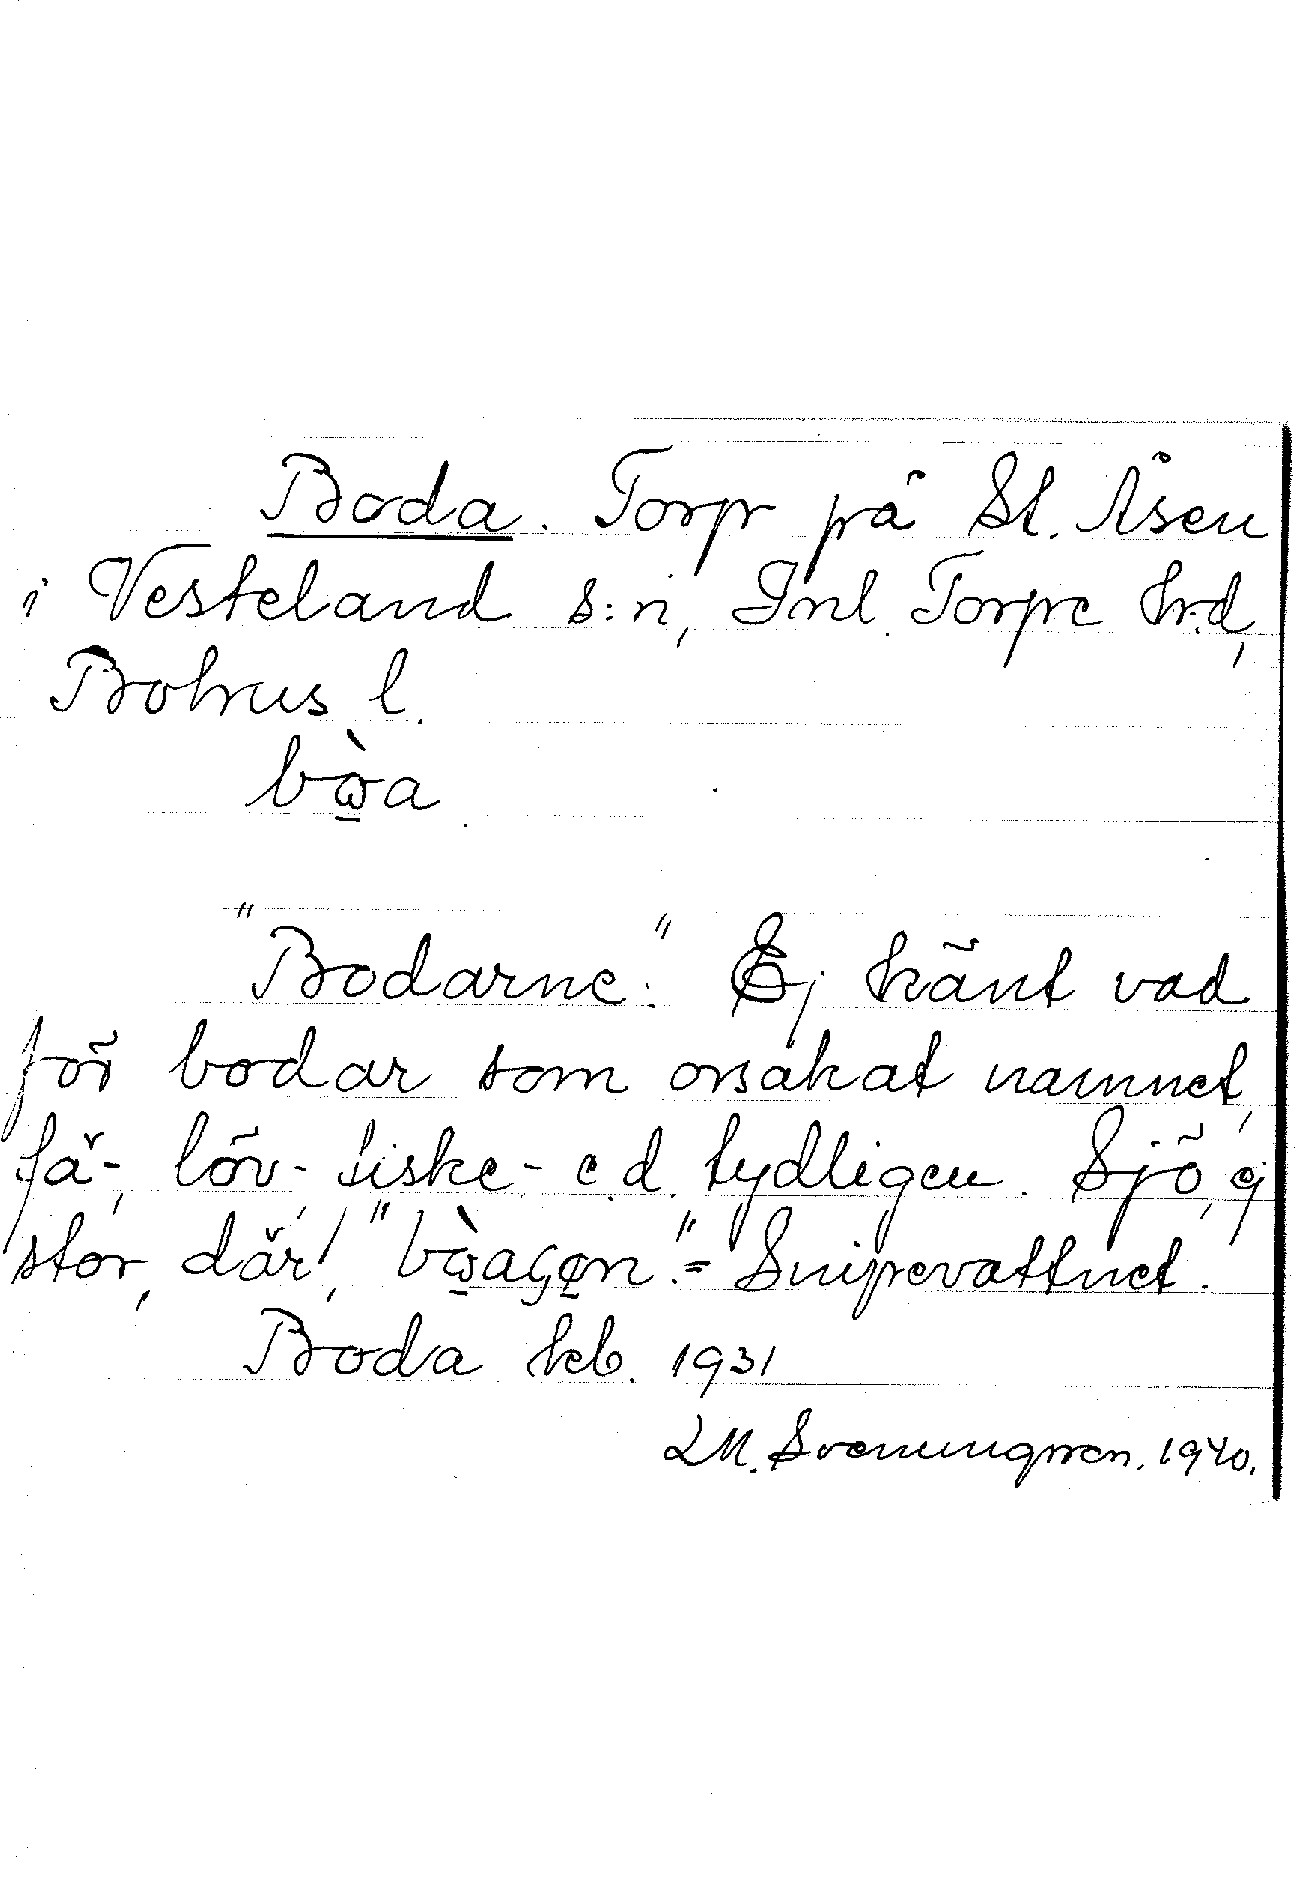 Boda. Torp på St. Åsen
i Vesteland s:n, Inl. Torpe hrd,
Bohus l.
bὼ̲a
"Bodarne." Ej känt vad
för bodar som orsakat namnet,
fä-, löv-, fiske- e.d. tydligen. Sjö, ej
stor, där!, "bὼ̲aɢøn". = Snipevattnet.
Boda kb. 1931
LM. Svenungsson. 1940.